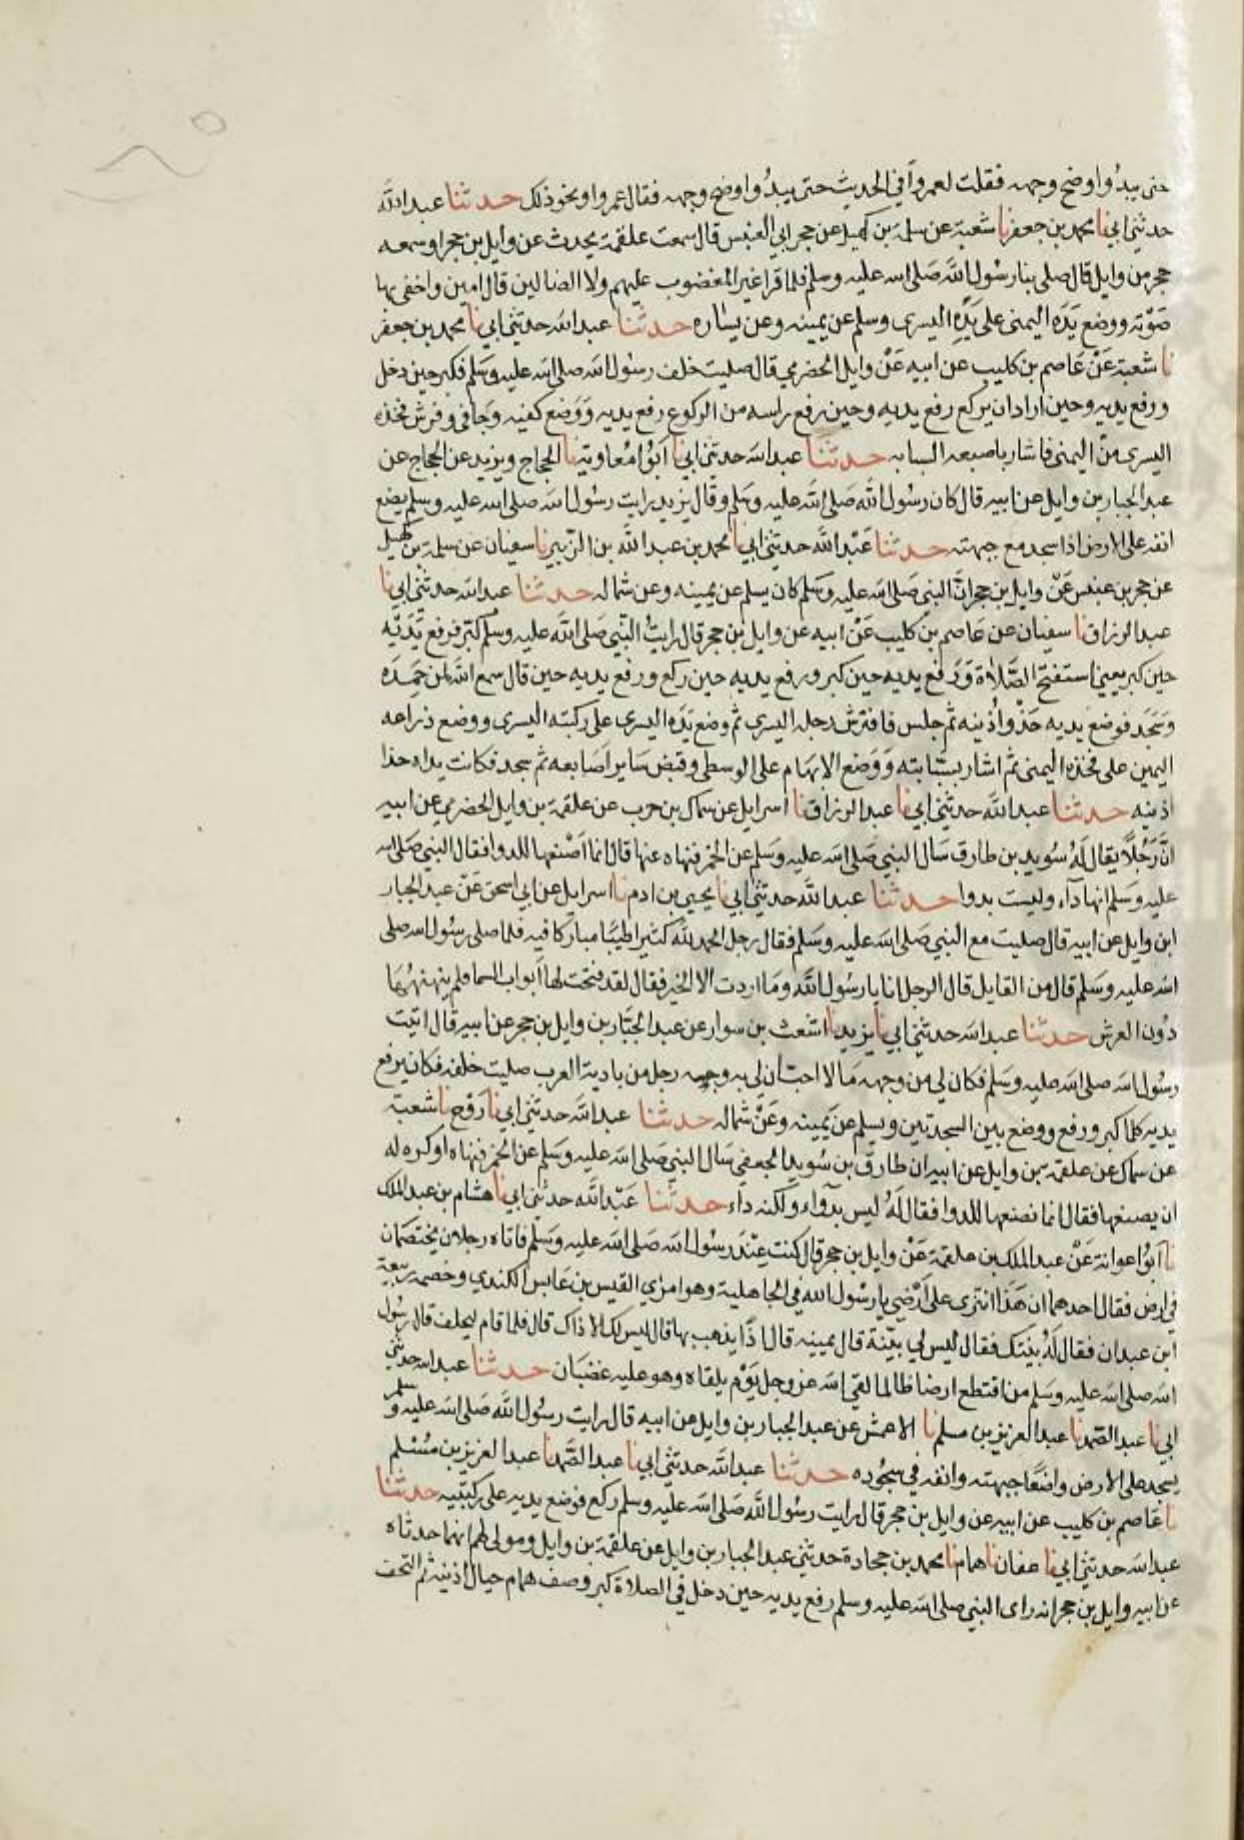 حتى يبدُوا وضح وجهه فقلت لعمرو أفي الحديث حتى يبدُوا وضح وجهه فقال عمرو او نحو ذلك حدثنا عبد الله
حدثني ابي نا محمد بن جعفر نا شعبة عن سلمة بن كهيل عن حجر ابي العنبس قال سمعت علقمة يحدث عن وايل بن حجر او سمعه
حجر من وايل قال صلى بنا رسول الله صلى الله عليه وسلم فلما قرا غير المغضوب عليهم ولا الضالين قال امين واخفى بها
صوته ووضع يده اليمنى على يده اليسرى وسلم عن يمينه وعن يساره حدثنا عبد الله حدثني ابي نا محمد بن جعفر
نا شعبة عن عاصم بن كليب عن ابيه عن وايل الحضرمي قال صليت خلف رسول الله صلى الله عليه وسلم فكبر حين دخل
ورفع يديه وحين اراد ان يركع رفع يديه وحين رفع راسه من الركوع رفع يديه ووضع كفيه وجافى وفرش فخذه
اليسرى من اليمنى فاشار باصبعه السبابه حدثنا عبد الله حدثني ابي نا ابو معاوية نا الحجاج ويزيد عن الحجاج عن
عبد الجبار بن وايل عن ابيه قال كان رسول الله صلى الله عليه وسلم وقال يزيد رايت رسول الله صلى الله عليه وسلم يضع
انفه على الارض اذا سجد مع جبهته حدثنا عبد الله حدثني ابي نا محمد بن عبد الله بن الزبير نا سفيان عن سلمة بن كهيل
عن حجر بن عنبس عن وايل بن حجر انّ النبي صلى الله عليه وسلم كان يسلم عن يمينه وعن شماله حدثنا عبد الله حدثني ابي نا
عبد الرزاق نا سفيان عن عاصم بن كليب عن ابيه عن وايل بن حجر قال رايت النبي صلى الله عليه وسلم كبّر فرفع يديه
حين كبر يعني استفتح الصلاة ورفع يديه حين كبر ورفع يديه حين ركع ورفع يديه حين قال سمع الله لمن حمده
وسجد فوضع يديه حذو اذنيه ثم جلس فافترش رجله اليسرى ثم وضع يده اليسرى على ركبته اليسرى ووضع ذراعه
اليمين على فخذه اليمنى ثم اشار بسبّابته ووضع الابهام على الوسطى وقبض ساير اصابعه ثم سجد فكانت يداه حذا
اذنيه حدثنا عبد الله حدثني ابي نا عبد الرزاق نا اسرايل عن سماك بن حرب عن علقمة بن وايل الحضرمي عن ابيه
انّ رجلاً يقال له سُويد بن طارق سال النبي صلى الله عليه وسلم عن الخمر فنهاه عنها قال انما اصنعها للدوا فقال النبي صلى الله
عليه وسلم انها دآء وليست بدوا حدثنا عبد الله حدثني ابي نا يحيى بن ادم نا اسرايل عن ابي اسحق عن عبد الجبار
ابن وايل عن ابيه قال صليت مع النبي صلى الله عليه وسلم فقال رجل الحمد لله كثيرا طيّبا مباركا فيه فلما صلى رسول الله صلى
الله عليه وسلم قال من القايل قال الرجل انا يا رسول الله وما اردت الا الخير فقال لقد فتحت لها ابواب السما فلم ينهنهها
دون العرش حدثنا عبد الله حدثني ابي نا يزيد نا اشعث بن سوار عن عبد الجبّار بن وايل بن حجر عن ابيه قال اتيت
رسول الله صلى الله عليه وسلم فكان لي من وجهه ما لا احب ان لي به وجه رجل من بادية العرب صليت خلفه فكان يرفع
يديه كلما كبر ورفع ووضع بين السجدتين ويسلم عن يمينه وعن شماله حدثنا عبد الله حدثني ابي نا روح نا شعبة
عن سماك عن علقمة بن وايل عن ابيه ان طارق بن سُويد الجعفي سال النبي صلى الله عليه وسلم عن الخمر فنهاه او كره له
ان يصنعها فقال انما نصنعها للدوا فقال له ليس بدوآء ولكنه داء حدثنا عبد الله حدثني ابي نا هشام بن عبد الملك
نا ابو عوانة عن عبد الملك بن علقمة عن وايل بن حجر قال كنت عند رسول الله صلى الله عليه وسلم فاتاه رجلان يختصمان
في ارض فقال احدهما ان هذا انتزى على ارضي يا رسول الله في الجاهلية وهو امرئ القيس بن عابس الكندي وخصمه ربيعة
ابن عبدان فقال له بينتك فقال ليس لي بيّنة قال يمينه قال اذًا يذهب بها قال ليس لك الا ذاك قال فلما قام ليحلف قال رسول
الله صلى الله عليه وسلم من اقتطع ارضا ظالما لقي الله عز وجل يوم يلقاه وهو عليه غضبان حدثنا عبد الله حدثني
ابي نا عبد الصمد نا عبد العزيز بن مسلم نا الاعمش عن عبد الجبار بن وايل عن ابيه قال رايت رسول الله صلى الله عليه وسلم
يسجد على الارض واضعًا جبهته وانفه في سجوده حدثنا عبد الله حدثني ابي نا عبد الصّمد نا عبد العزيز بن مسلم
نا عاصم بن كليب عن ابيه عن وايل بن حجر قال رايت رسول الله صلى الله عليه وسلم ركع فوضع يديه على ركبتيه حدثنا
عبد الله حدثني ابي نا عفان نا همام نا محمد بن جحادة حدثني عبد الجبار بن وايل عن علقمة بن وايل ومولى لهم انهما حدثاه
عن ابيه وايل بن حجر انه راى النبي صلى الله عليه وسلم رفع يديه حين دخل في الصلاة كبر وصف همام حيال اذنيه ثم التحف